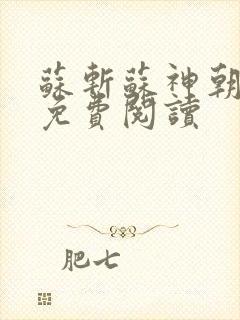 蘇斬蘇神朝
免費閱讀
肥七